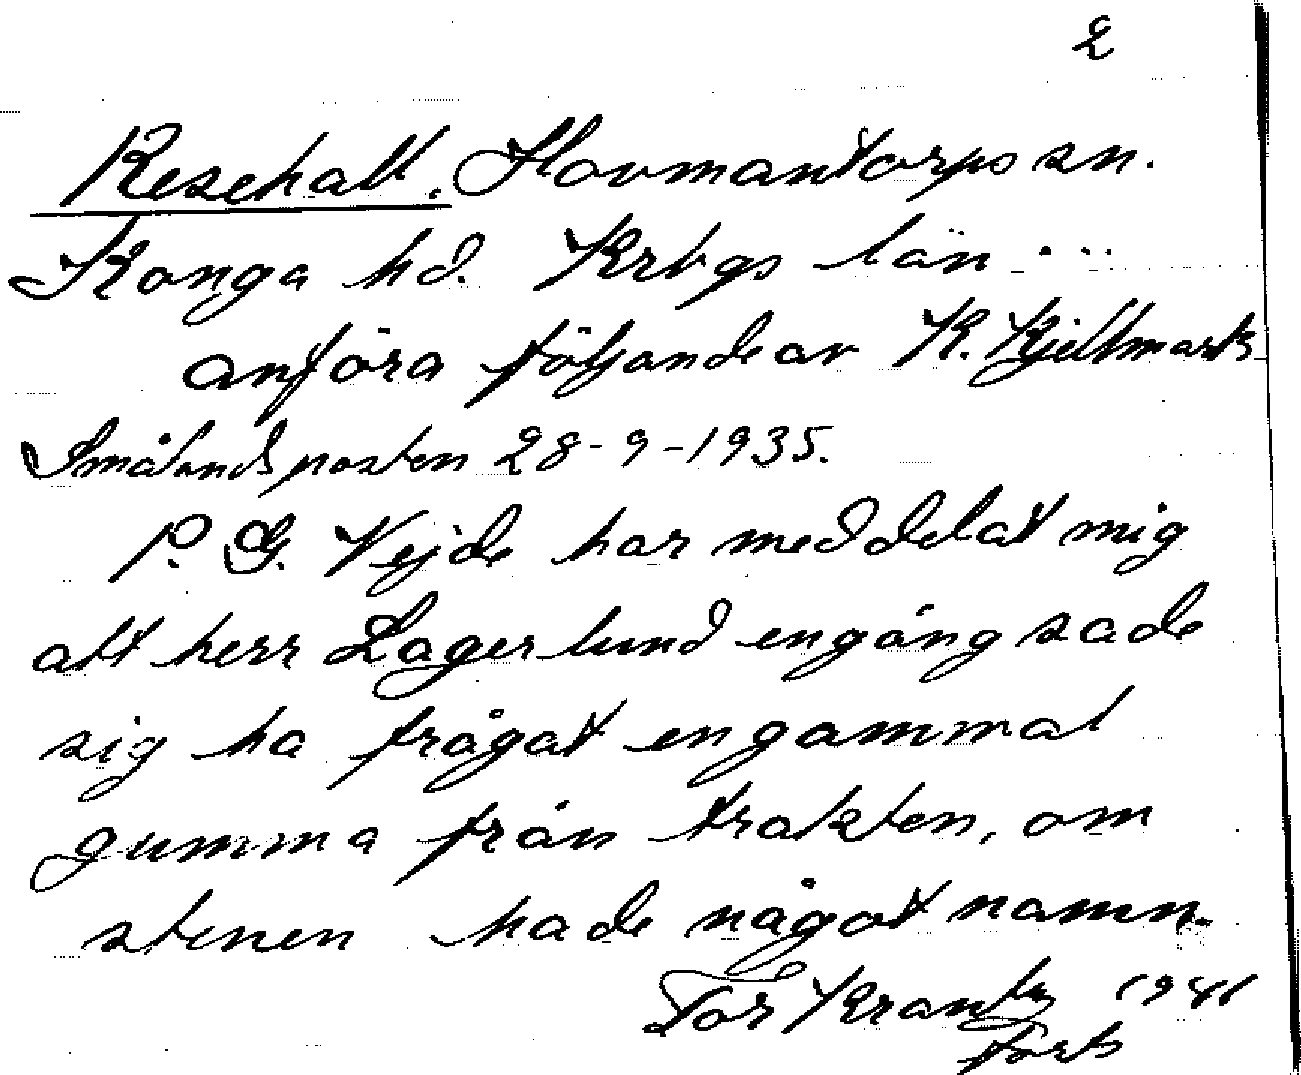 2
Resehall. Hovmantorps sn.
Konga hd. Krbgs län ...
anföra följande av K. Kjellmark
Smålandsposten 28-9-1935.
P. G. Vejde har meddelat mig
att herr Lagerlund engång sade
sig ha frågat en gammal
gumma från trakten, om
stenen hade något namn.
Tor Krantz 1941
forts